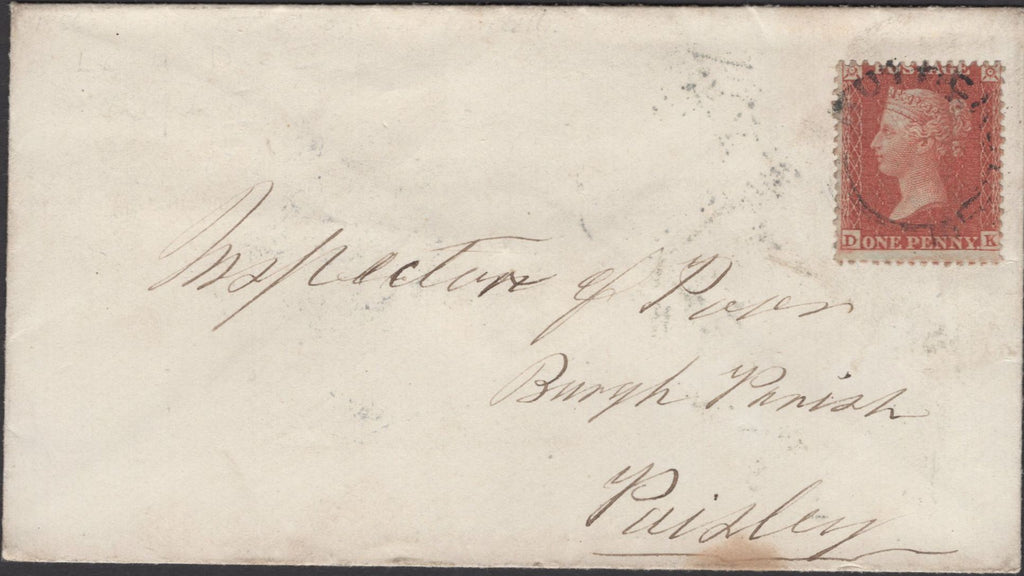 POSTAGE
D ONE PENNY K
Inspector of Poor
Burgh Parish
Paisley